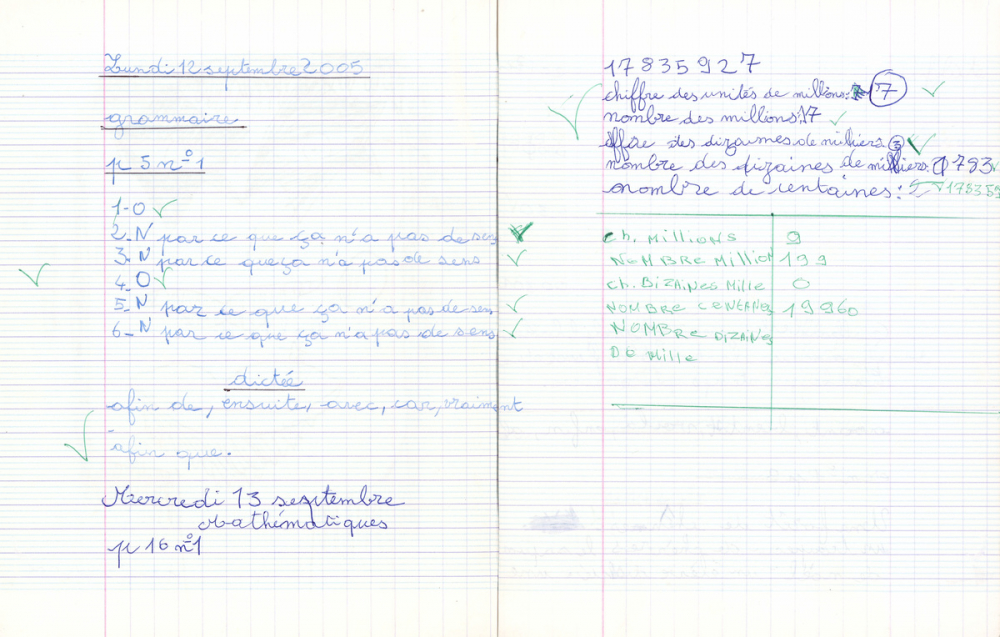 Lundi 12 septembre 2005
grammaire
p 5 n°1
1-O
2-N par ce que ça n'a pas de sens
3-N par ce que ça n'a pas de sens
4-O
5-N par ce que ça n'a pas de sens
6-N par ce que ça n'a pas de sens
dictée
afin de, ensuite, avec, car, vraiment
afin que.
Mercredi 13 septembre
Mathématiques
p 16 n°1
17835927
chiffre des unités de millions: 7
nombre des millions: 17
iffre des dizaines de milliers 3
nombre des dizaines de milliers: 1783
nombre de centaines: 178359
Ch. MILLIONS 9
NOMBRE MilliON 199
ch. DIZAINES Mille 0
NOMBRE CENTAINES 19960
NOMBRE DIZAINS
DE Mille